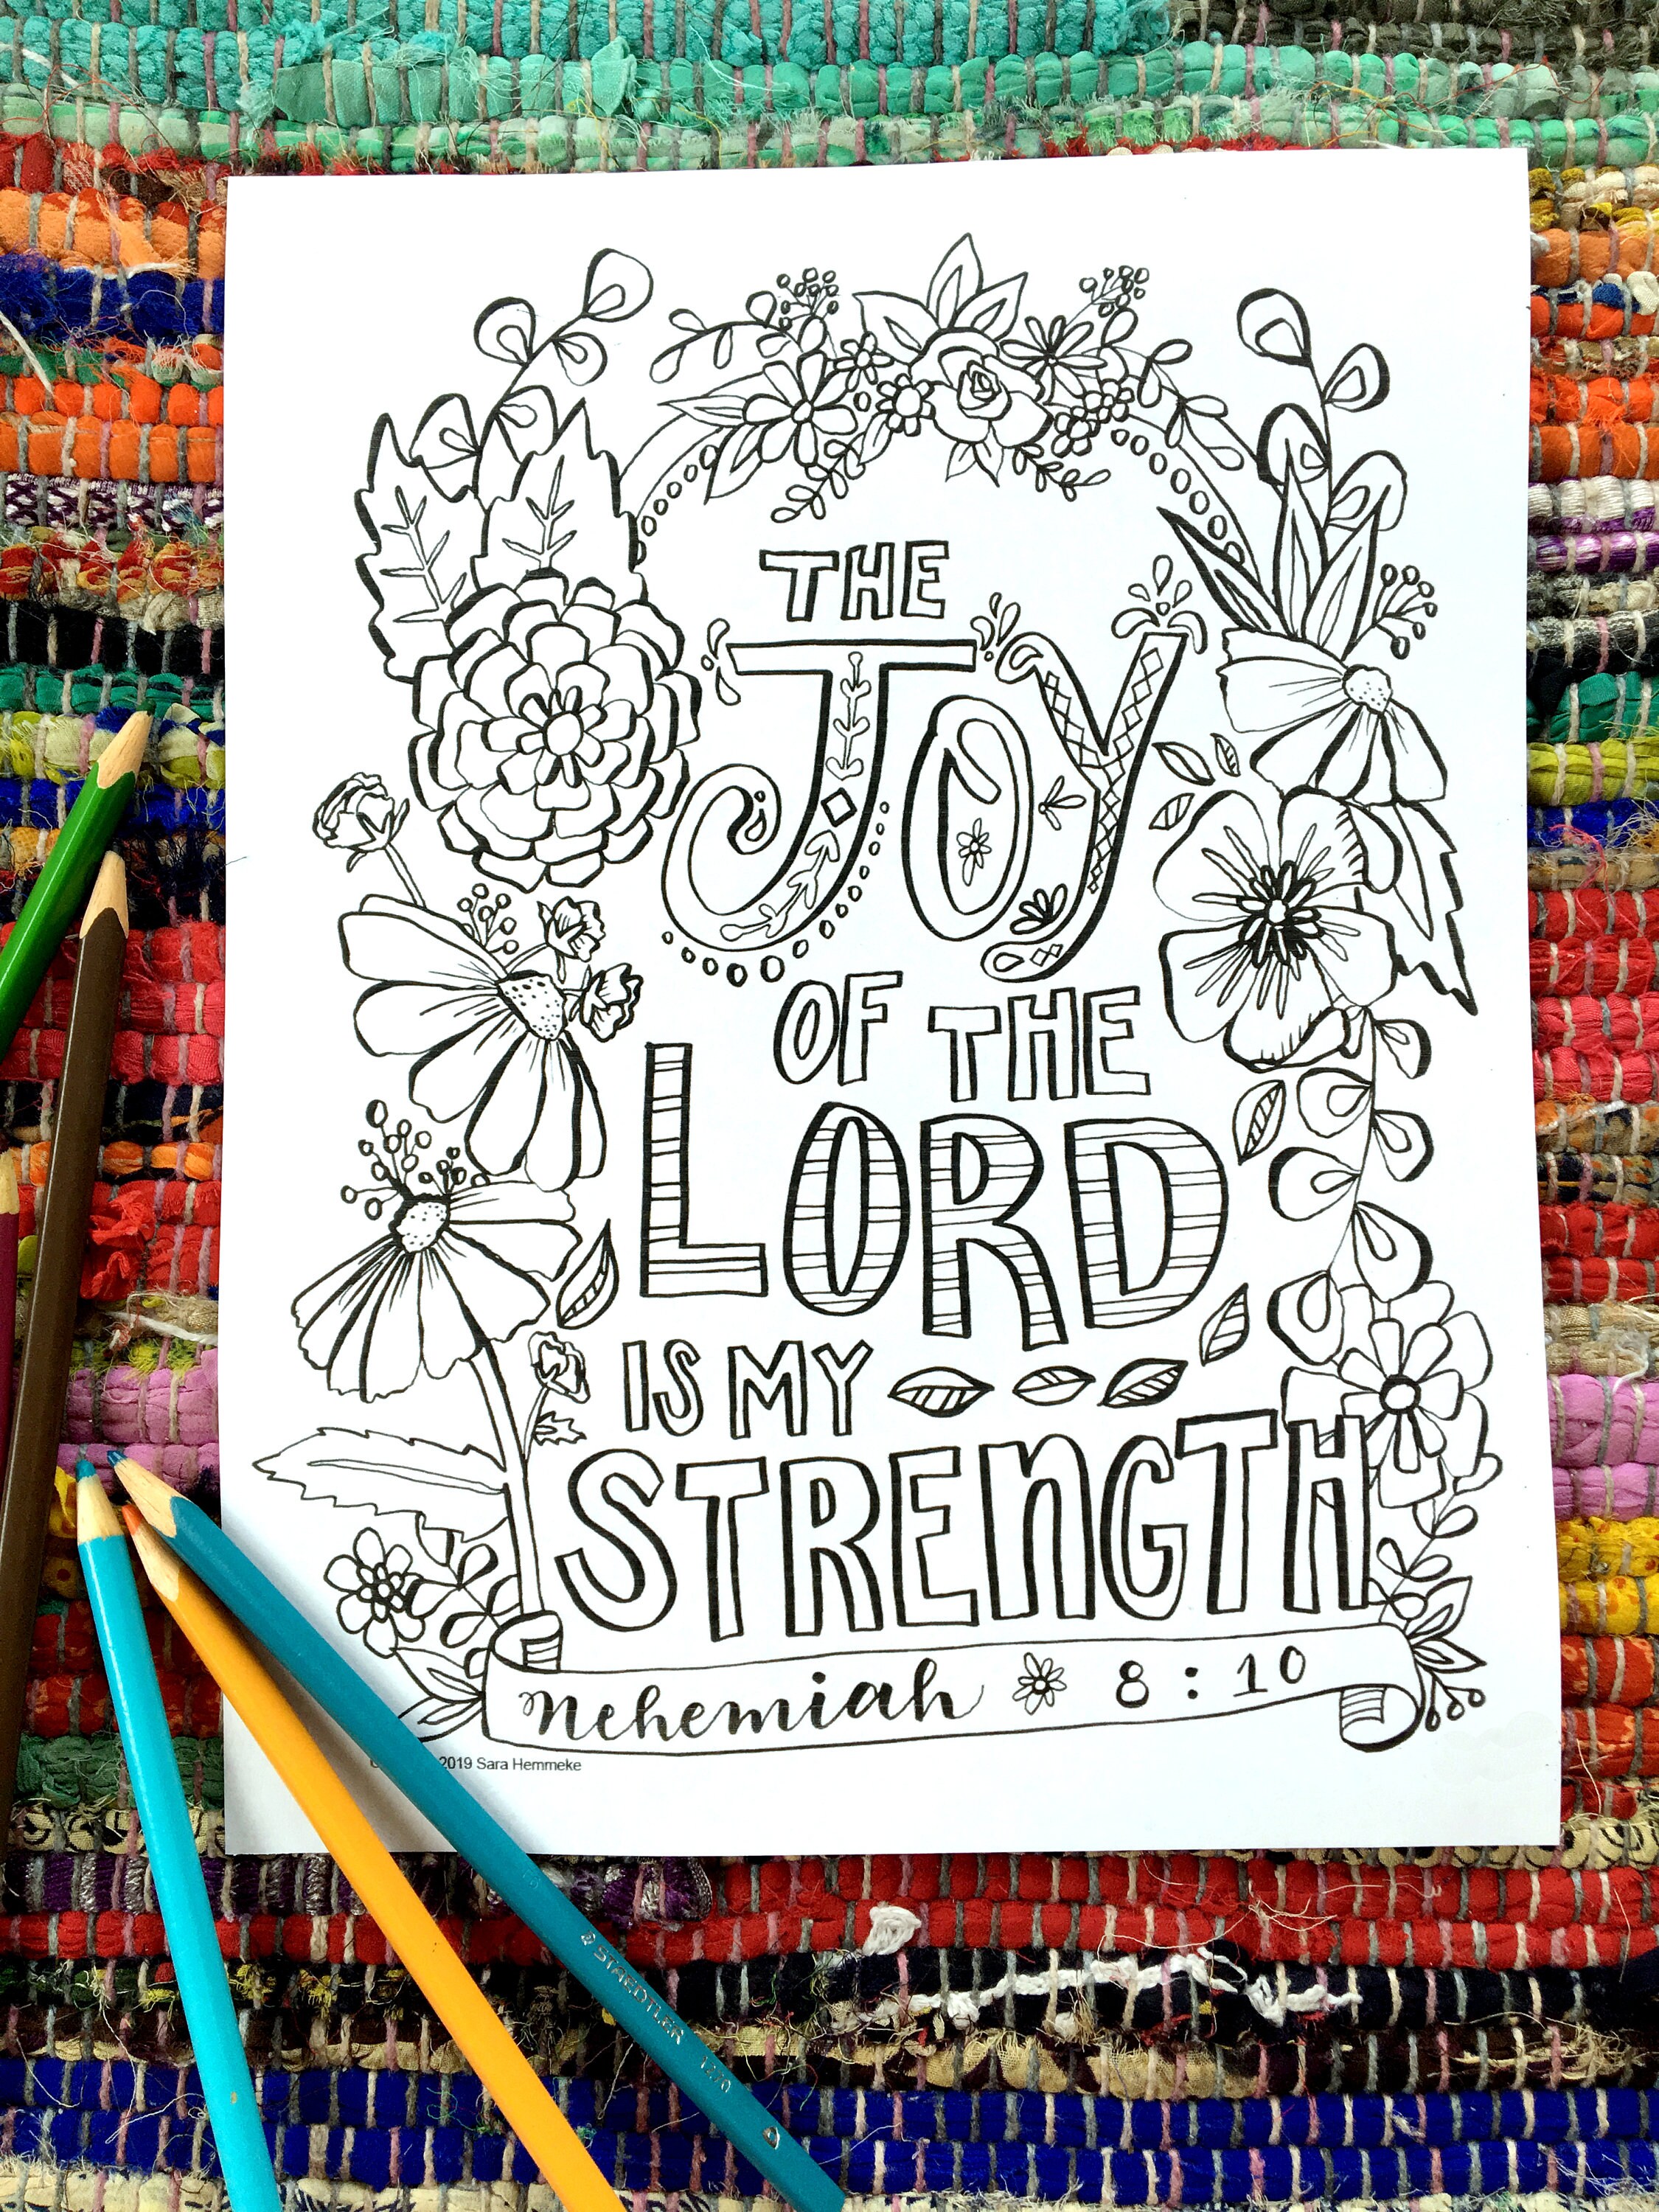 THE
JOY
OF THE
LORD
IS MY
STRENGTH
Nehemiah 8:10
2019 Sara Hemmeke
STAEDTLER 1270